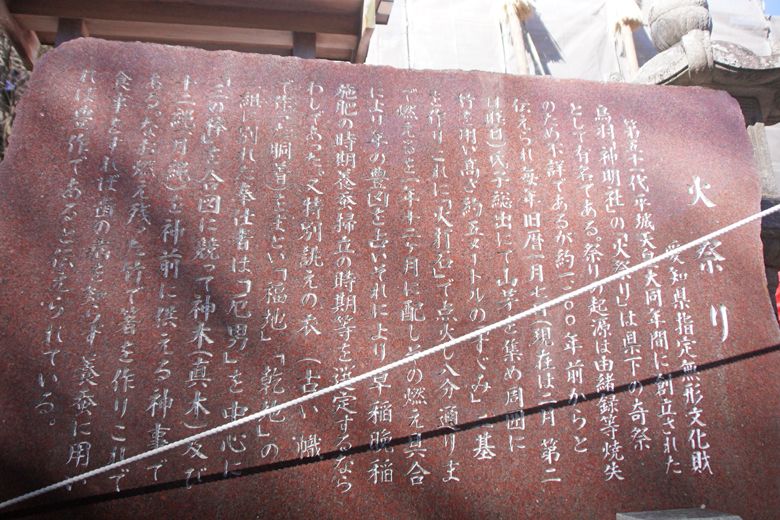 火祭り
愛知県指定無形文化財
第五十一代平城天皇大同年間に創立された
鳥羽「神明社」の「火祭り」は県下の奇祭
として有名である。祭りの起源は由緒録等焼失
のため不詳であるが約一二〇〇年前からと
伝えられ毎年旧暦一月七日(現在は二月第二
日曜日)氏子総出にて山等を集め周囲に
竹を用い高さ約五メートルの「すずみ」二基
を作りこれに「火打石」で点火し八分通りま
で燃えると一年十二ヶ月に配しその燃え具合
により年の豊凶を占いそれにより早稲晩稲
施肥の時期養蚕掃立の時期等を選定するなら
わしであった。又特別誂えの衣(古い幟
で作った胴着)をまとい「福地」「乾地」の
二組に別れた奉仕者は「厄男」を中心に
を合図に競って神木(真木)及び
十二縄(月縄)を神前に供える神事で
ある。なお燃え残った竹で箸を作りこれで
食事をすれば歯の若を知らず養蚕に用い
れば豊作であると伝えられている。